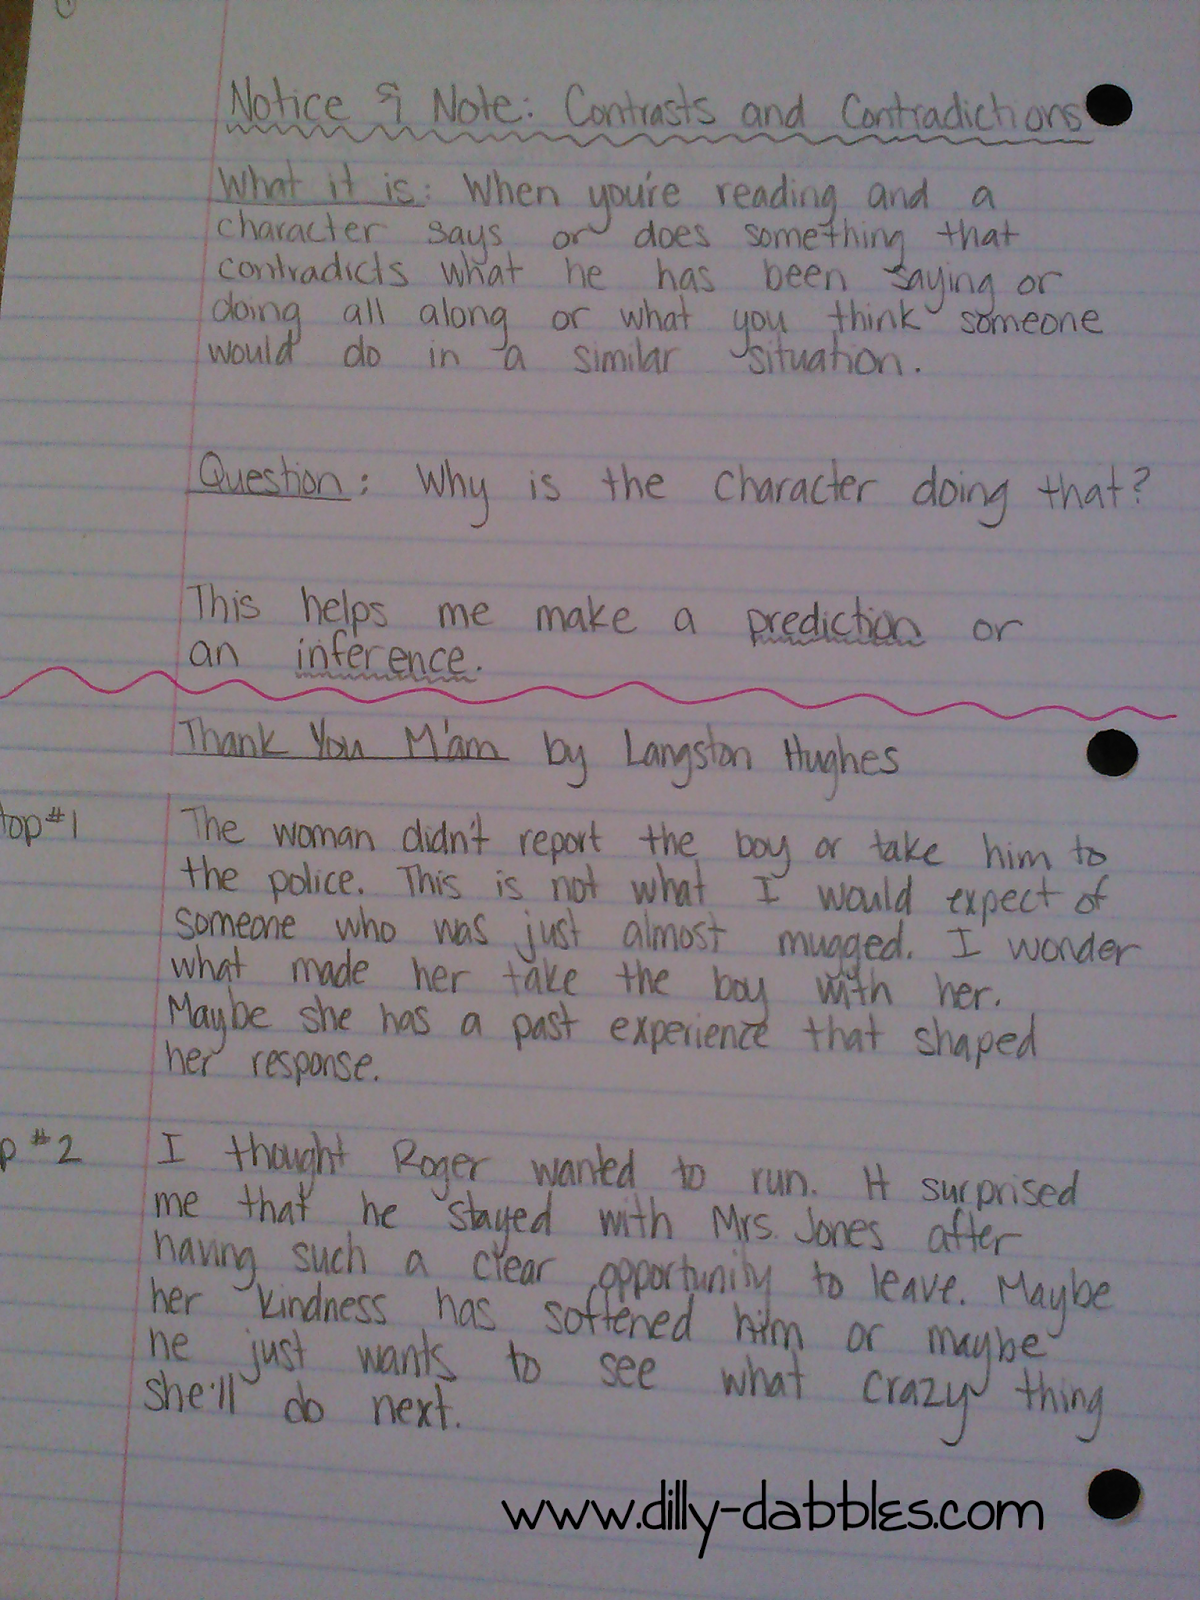 Notice & Note: Contrasts and Contradictions
What it is: When you're reading and a
character says or does something that
contradicts what he has been saying or
doing all along or what you think someone
would do in a similar situation.
Question: Why is the character doing that?
This helps me make a prediction or
an inference.
Thank You M'am by Langston Hughes
top #1
The woman didn't report the boy or take him to
the police. This is not what I would expect of
someone who was just almost mugged. I wonder
what made her take the boy with her.
Maybe she has a past experience that shaped
her response.
p #2
I thought Roger wanted to run. It surprised
me that he stayed with Mrs. Jones after
having such a clear opportunity to leave. Maybe
her kindness has softened him or maybe
he just wants to see what crazy thing
she'll do next.
www.dilly-dabbles.com